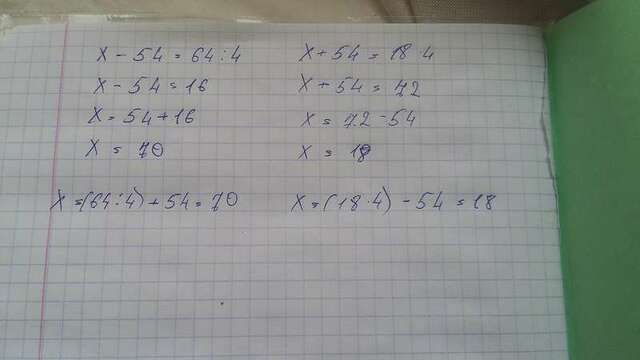 x - 54 = 64 : 4
x - 54 = 16
x = 54 + 16
x = 70
x = (64 : 4) + 54 = 70
x + 54 = 18 · 4
x + 54 = 72
x = 72 - 54
x = 18
x = (18 · 4) - 54 = 18